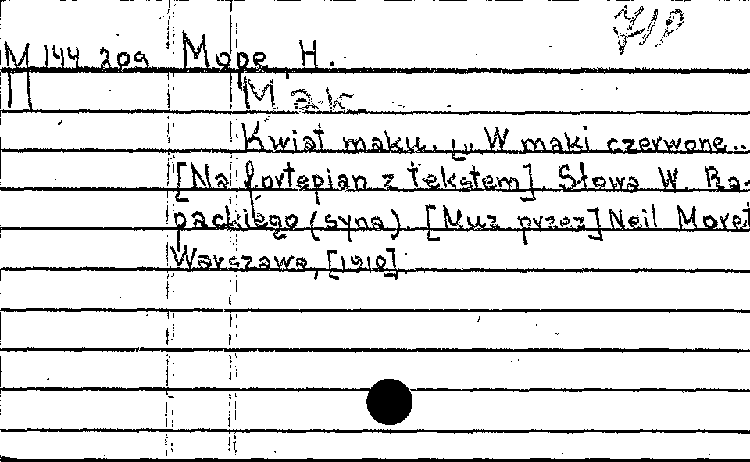 71Р
М 144 209 Море, Н.
П Мак
Kwiat maku. [„ W maki czerwone..
[Na fortepian z tekstem]. Słowa W. Ra-
packiego (syna). [Muz przez] Neil Moret
Warszawa, [1910]